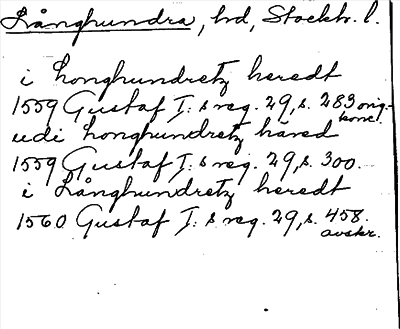 Långhundra, hd, Stockh. l.
i honghundretz heredt
1559 Gustaf I:s reg. 29, s. 283 orig.-
konc.
udi honghundretz häred
1559 Gustaf I:s reg. 29, s. 300.
i Långhundretz heredt
1560 Gustaf I:s reg. 29, s. 458.
avskr.